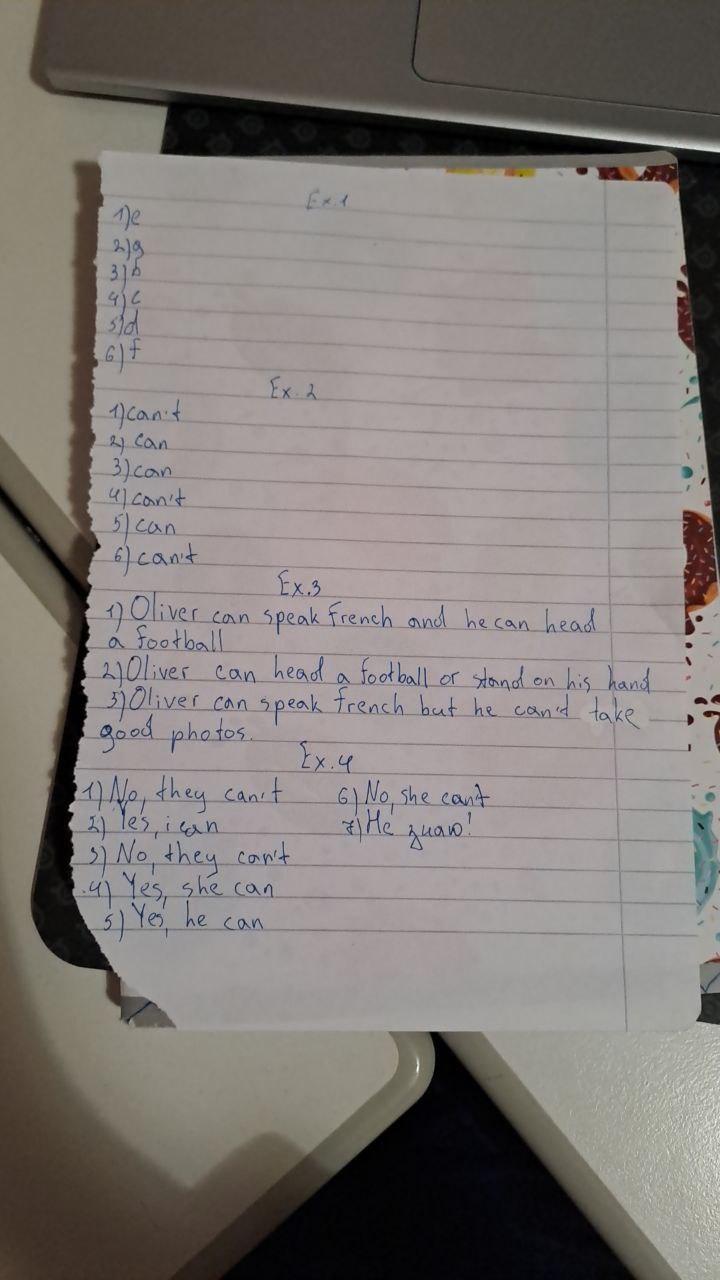 Ex.1
1)e
2)g
3)b
4)c
5)d
6)f
Ex. 2
1)can't
2) can
3)can
4) can't
5) can
6) can't
Ex.3
1) Oliver can speak french and he can head
a football
2) Oliver can head a football or stand on his hand
3) Oliver can speak french but he can't take
good photos.
Ex.4
1) No, they can't
2) Yes, i can
3) No, they can't
4) Yes, she can
5) Yes, he can
6) No, she can't
7) Не знаю!